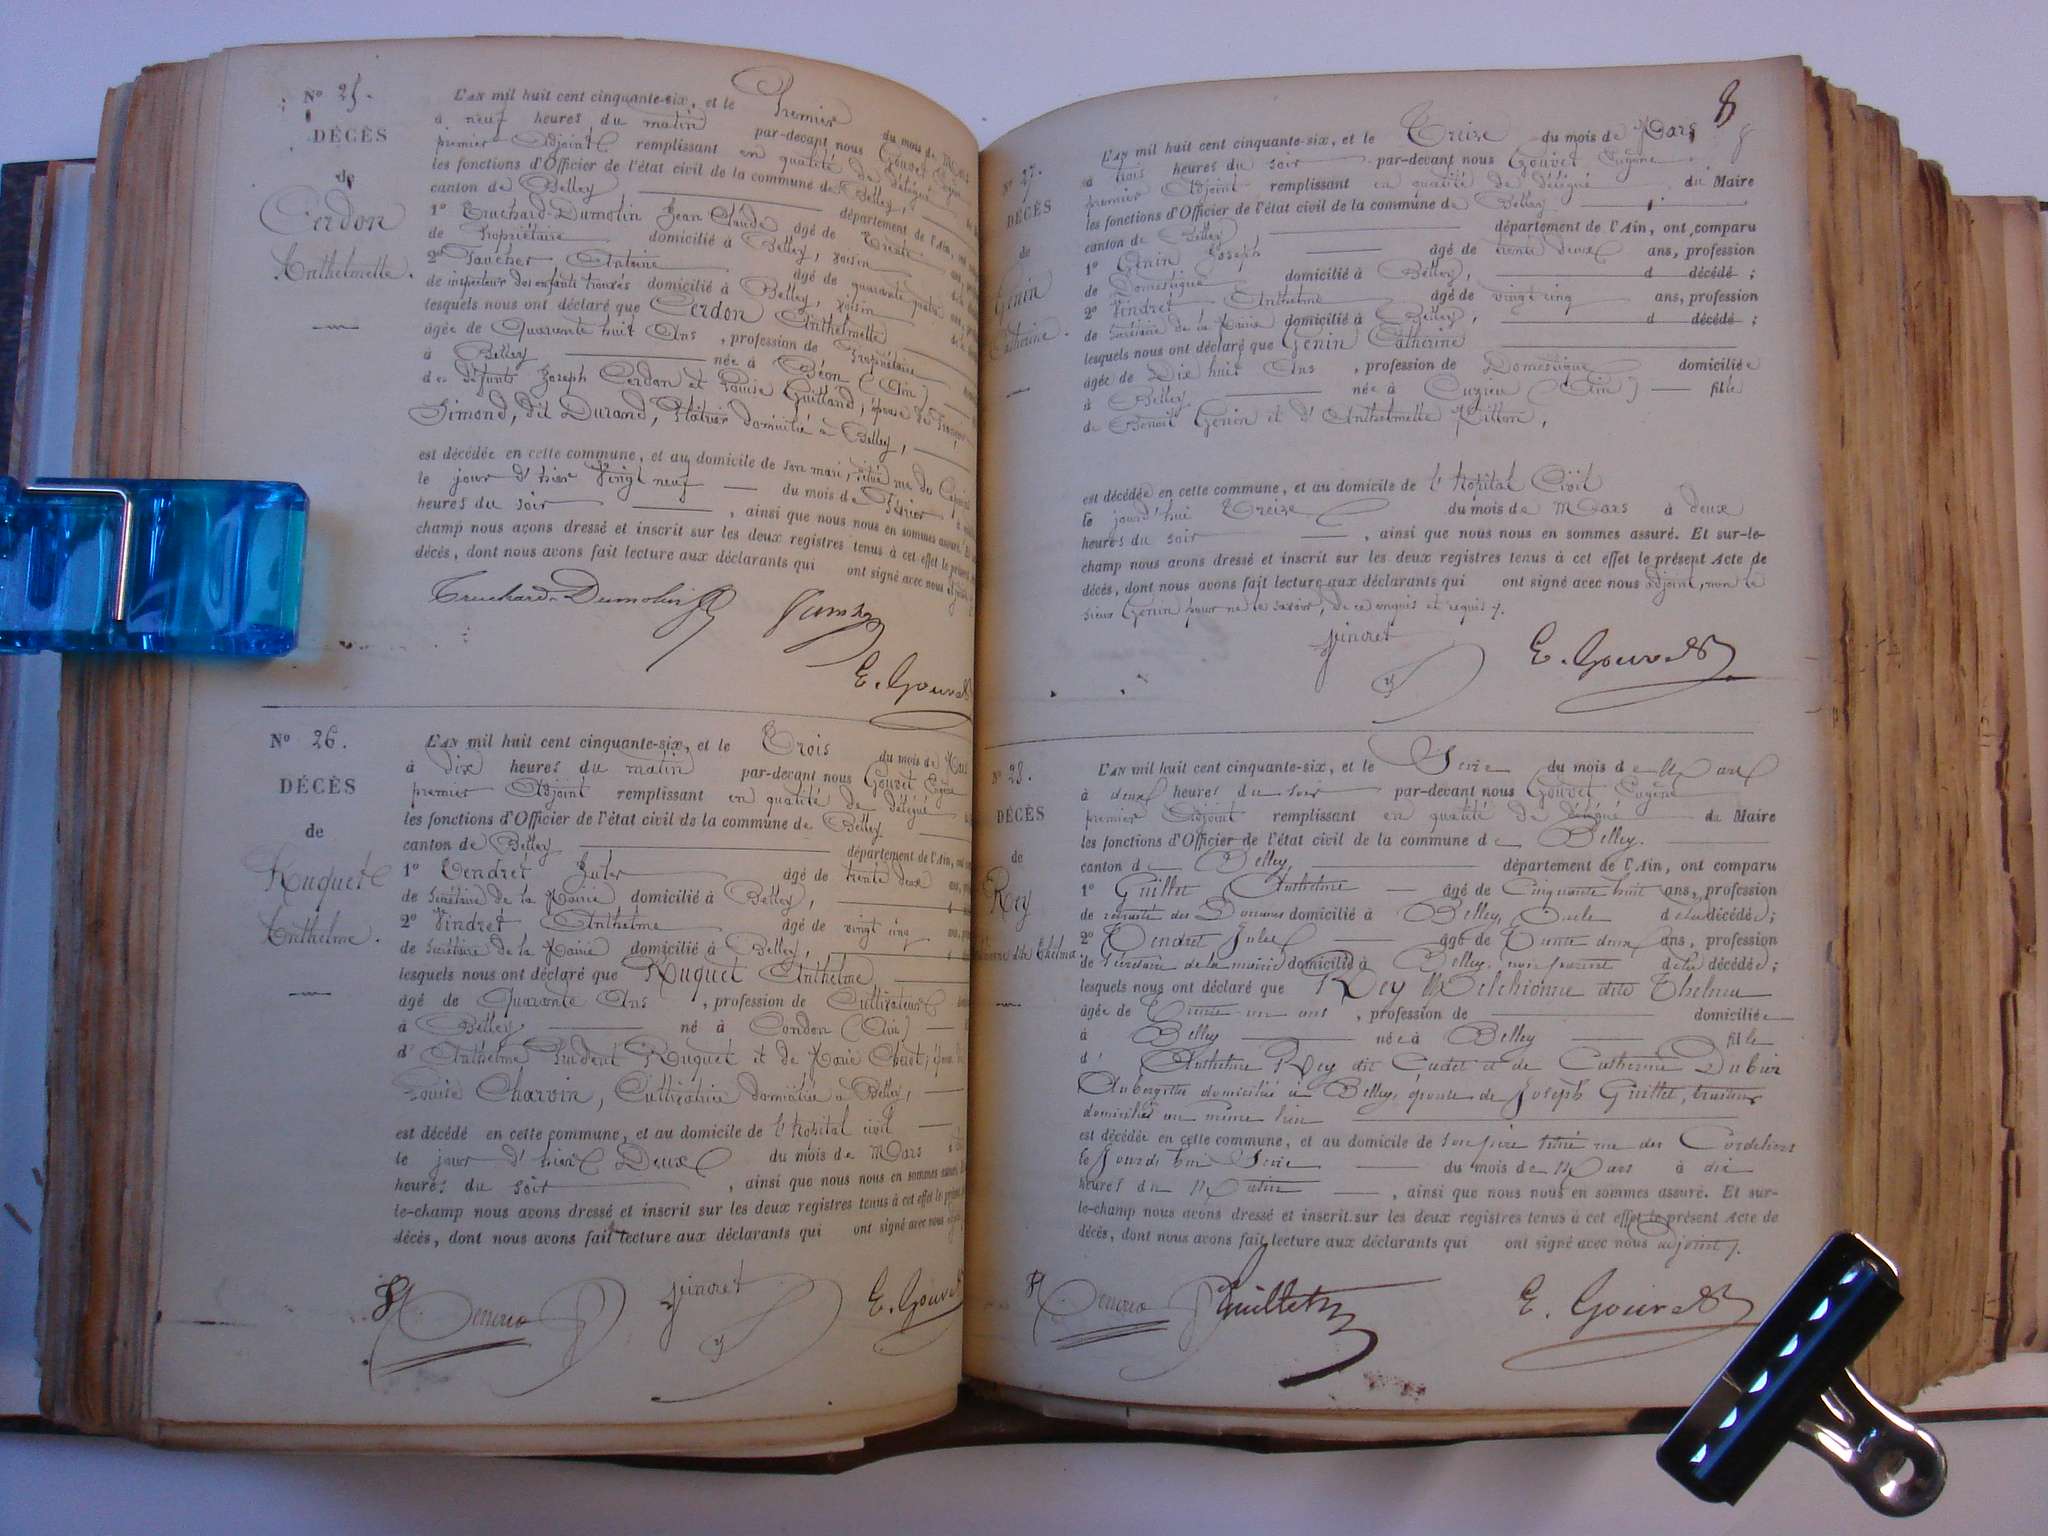 Nº 25.
DÉCÈS
de
Cerdon
Anthelmette.
L'AN mil huit cent cinquante-six, et le Premier du mois de Mars
à neuf heures du matin par-devant nous Gouvet Eugène
premier Adjoint remplissant en qualité de délégué
les fonctions d'Officier de l'état civil de la commune de Belley,
canton de Belley département de l'Ain,
1º Truchard-Dumolin Jean Claude âgé de Trente
de Propriétaire domicilié à Belley, voisin
2º Antoine âgé de quarante quatre
de inspecteur des enfants trouvés domicilié à Belley, voisin
lesquels nous ont déclaré que Cerdon Anthelmette
âgée de Quarante huit Ans, profession de Propriétaire
à Belley née à Béon (Ain)
de défunts Joseph Cerdon et Louise Guilland, épouse de François
Simond, dit Durand, Plâtrier domicilié à Belley,
est décédée en cette commune, et au domicile de son mari, situé rue des
le jour d'hier Vingt neuf du mois de Février à
heures du soir, ainsi que nous nous en sommes assuré. Et
champ nous avons dressé et inscrit sur les deux registres tenus à cet effet le présent
décès, dont nous avons fait lecture aux déclarants qui ont signé avec nous adjoint
Truchard-Dumolin
E. Gouvet
Nº 26.
DÉCÈS
de
Ruquet
Anthelme.
L'AN mil huit cent cinquante-six, et le Trois du mois de Mars
à dix heures du matin par-devant nous Gouvet Eugène
premier Adjoint remplissant en qualité de délégué
les fonctions d'Officier de l'état civil de la commune de Belley
canton de Belley département de l'Ain, ont
1º Tendret Jules âgé de trente deux ans,
de Secrétaire de la Mairie domicilié à Belley,
2º Vindret Anthelme âgé de vingt cinq ans,
de Secrétaire de la Mairie domicilié à Belley,
lesquels nous ont déclaré que Ruquet Anthelme
âgé de Quarante Ans, profession de Cultivateur
à Belley né à Condon (Ain)
d' Anthelme Prudent Ruquet et de Marie
Louise Charvin, Cultivatrice domiciliée à Belley,
est décédé en cette commune, et au domicile de l'Hôpital civil
le jour d'hier Deux du mois de Mars à
heures du soir, ainsi que nous nous en sommes assuré.
le-champ nous avons dressé et inscrit sur les deux registres tenus à cet effet le
décès, dont nous avons fait lecture aux déclarants qui ont signé avec nous
Vindret
E. Gouvet
8
8
Nº 27.
DÉCÈS
de
Genin
Catherine.
L'AN mil huit cent cinquante-six, et le Treize du mois de Mars
à trois heures du soir par-devant nous Gouvet Eugène
premier Adjoint remplissant en qualité de délégué du Maire
les fonctions d'Officier de l'état civil de la commune de Belley
canton de Belley département de l'Ain, ont comparu
1º Genin Joseph âgé de trente deux ans, profession
de Domestique domicilié à Belley, d décédé ;
2º Vindret Anthelme âgé de vingt cinq ans, profession
de Secrétaire de la Mairie domicilié à Belley, d décédé ;
lesquels nous ont déclaré que Genin Catherine
âgée de Dix huit Ans, profession de Domestique domiciliée
à Belley née à Cuzieu (Ain) fille
de Benoit Genin et d' Anthelmette Pitton,
est décédée en cette commune, et au domicile de l'Hôpital Civil
le jourd'hui Treize du mois de Mars à deux
heures du soir, ainsi que nous nous en sommes assuré. Et sur-le-
champ nous avons dressé et inscrit sur les deux registres tenus à cet effet le présent Acte de
décès, dont nous avons fait lecture aux déclarants qui ont signé avec nous adjoint, non le
sieur Genin pour ne le savoir, de ce enquis et requis.
Vindret
E. Gouvet
Nº 28.
DÉCÈS
de
Rey
dite Thelma.
L'AN mil huit cent cinquante-six, et le Seize du mois de Mars
à deux heures du soir par-devant nous Gouvet Eugène
premier Adjoint remplissant en qualité de délégué du Maire
les fonctions d'Officier de l'état civil de la commune de Belley.
canton de Belley département de l'Ain, ont comparu
1º Guillet Anthelme âgé de Cinquante huit ans, profession
de retraité des Douanes domicilié à Belley, Oncle de la décédée ;
2º Tendret Jules âgé de Trente deux ans, profession
de Secrétaire de la mairie domicilié à Belley, non parent de la décédée ;
lesquels nous ont déclaré que Rey Melchionne dite Thelma
âgée de Trente un ans, profession de domiciliée
à Belley née à Belley fille
d' Anthelme Rey dit Cadet et de Catherine Dubier
Aubergiste domiciliés à Belley, épouse de Joseph Guillet, traiteur
domicilié au même lieu
est décédée en cette commune, et au domicile de son père situé rue des Cordeliers
le Jourd'hui Seize du mois de Mars à dix
heures du Matin, ainsi que nous nous en sommes assuré. Et sur-
le-champ nous avons dressé et inscrit sur les deux registres tenus à cet effet le présent Acte de
décès, dont nous avons fait lecture aux déclarants qui ont signé avec nous adjoint.
Guillet
E. Gouvet